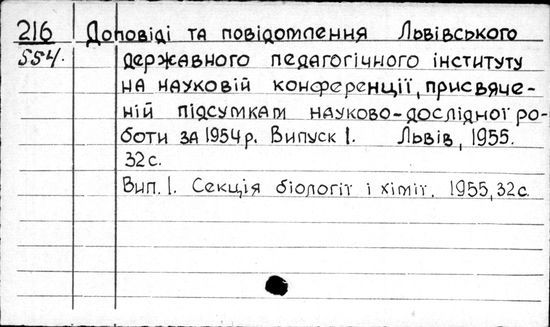 216 Доповіді та повідомлення Львівського
554. державного педагогічного інституту
на науковій конференції, присвяче-
ній підсумкам науково-дослідної ро-
боти за 1954 р. Випуск 1. Львів, 1955.
32 с.
Вип. 1. Секція біології і хімії. 1955, 32 с.